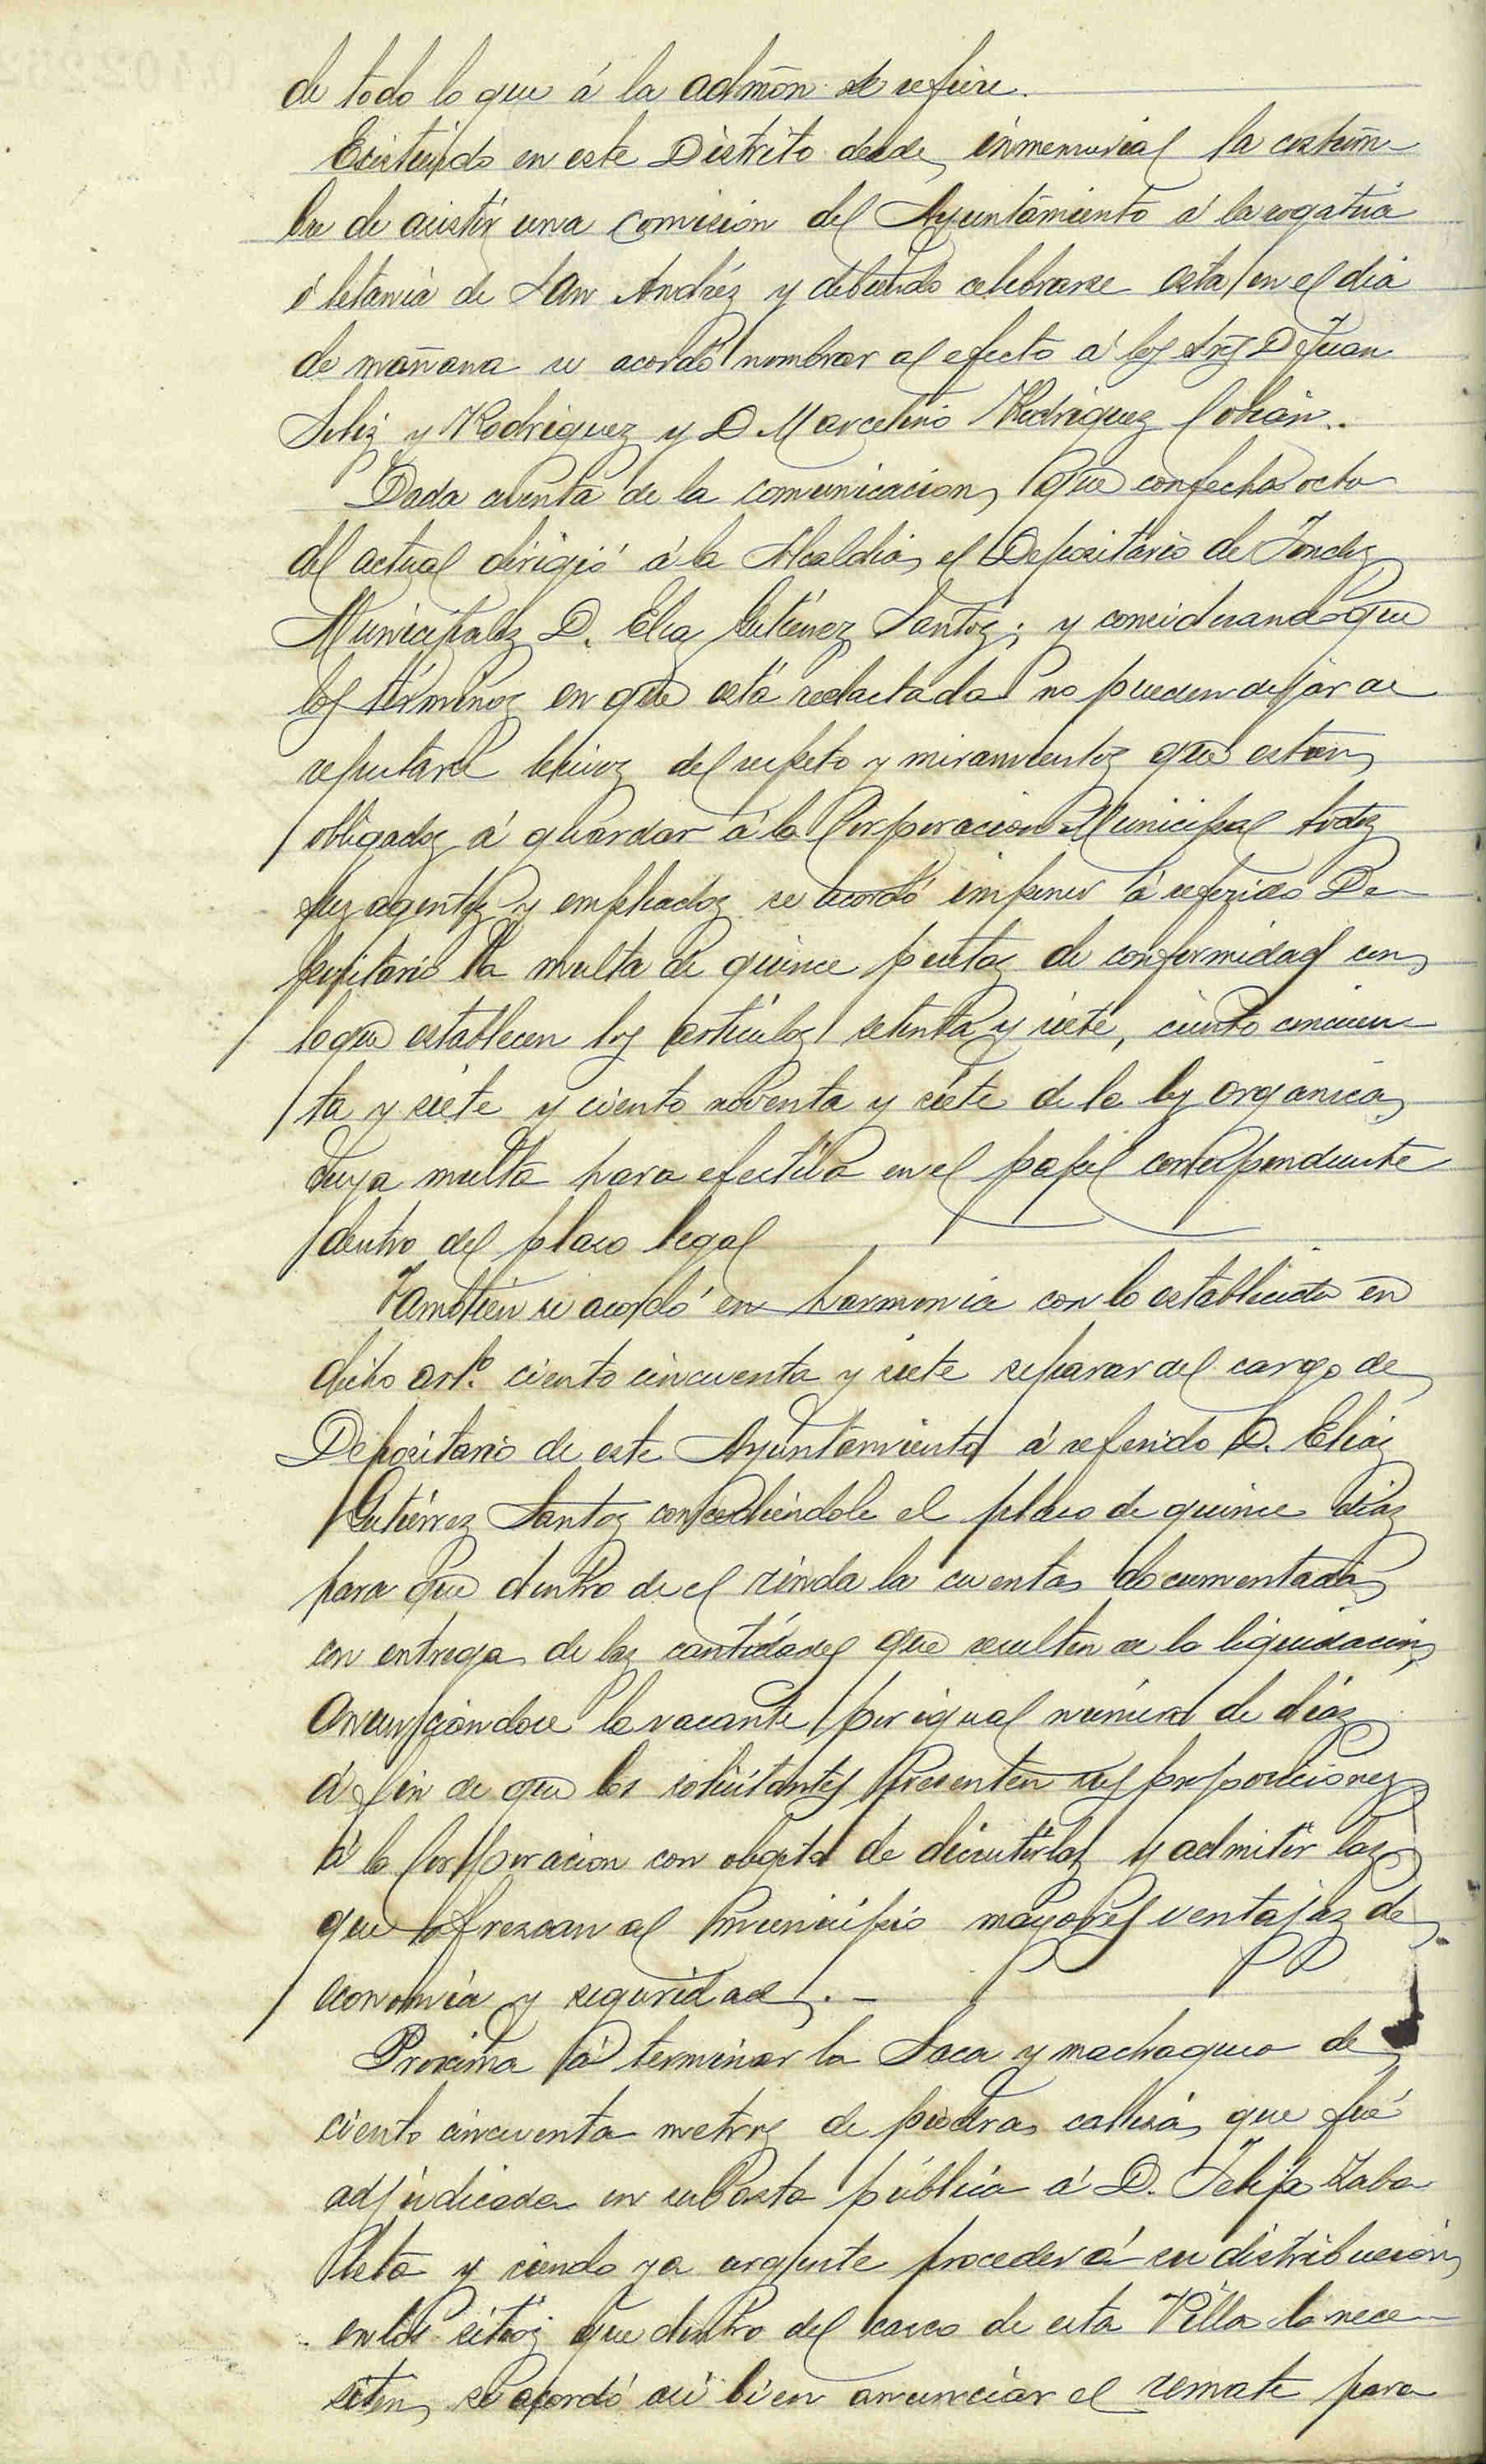 de todo lo que á la admōn se refiere.
Existiendo en este Distrito desde inmemorial la costum-
bre de asistir una comision del Ayuntamiento á la rogativa
ó letania de San Andrés y debiendo celebrarse esta en el dia
de mañana se acordó nombrar al efecto á los Sres D Juan
y Rodriguez y D Marcelino Rodriguez
Dada cuenta de la comunicacion que con fecha ocho
del actual dirigió á la Alcaldia el Depositario de Fondos
Municipales D. Elias Gutierrez Santos; y considerando que
los términos en que está redactada no pueden dejar de
reputarse lesivos del respeto y miramientos que estan
obligados á guardar á la Corporacion Municipal todos
sus agentes y empleados se acordó imponer á referido De-
positario la multa de quince pesetas de conformidad con
lo que establecen los articulos setenta y siete, ciento cincuen-
ta y siete y ciento noventa y siete de la ley organica,
cuya multa hara efectiva en el papel correspondiente
dentro del plazo legal
Tambien se acordó en harmonia con lo establecido en
dicho artº. ciento cincuenta y siete separar del cargo de
Depositario de este Ayuntamiento á referido D. Elias
Gutiérrez Santos concediéndole el plazo de quince dias
para que dentro de el rinda la cuenta documentada
con entrega de las cantidades que resulten de la liquidacion,
anunciandose la vacante por igual número de dias
á fin de que los solicitantes presenten sus proposiciones
á la Corporacion con objeto de discutirlas y admitir las
que ofrezcan al municipio mayores ventajas de
economia y seguridad. —
Proxima á terminar la Saca y machaqueo de
ciento cincuenta metros de piedra caliza que fué
adjudicada en subasta pública á D. Felipe Zaba
leta y siendo ya urgente proceder á su distribucion
en los sitios que dentro del casco de esta Villa lo nece-
siten, se acordó asi bien anunciar el remate para